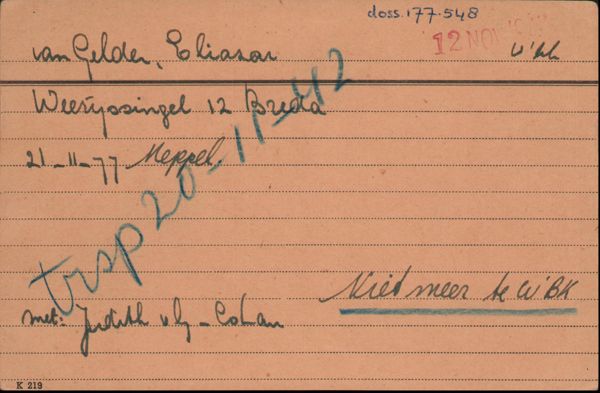 doss. 177-548
van Gelder, Eliazar
12 NOV W'bk
Weerijssingel 12 Breda
21-11-77 Meppel.
trsp 20-11-42
Niet meer te W'BK
met: Judith v G - Cohan
K 219